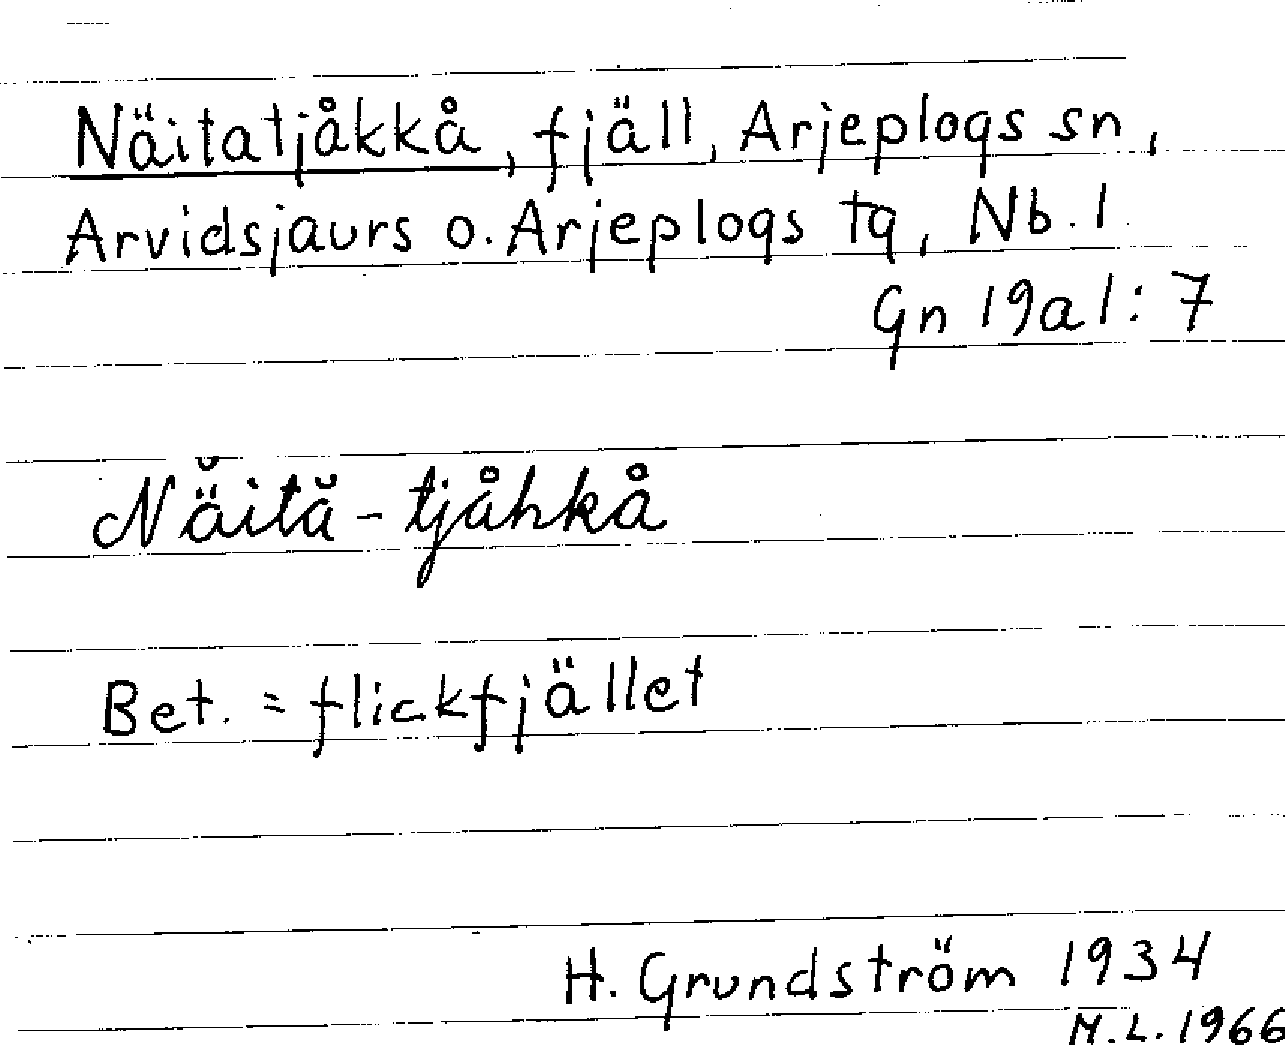 Näitatjåkkå, fjäll, Arjeplogs sn,
Arvidsjaurs o. Arjeplogs tg, Nb. l.
Gn 19a1:7
Nä̆ită-tjåhkå
Bet. = flickfjället
H. Grundström 1934
M.L. 1966